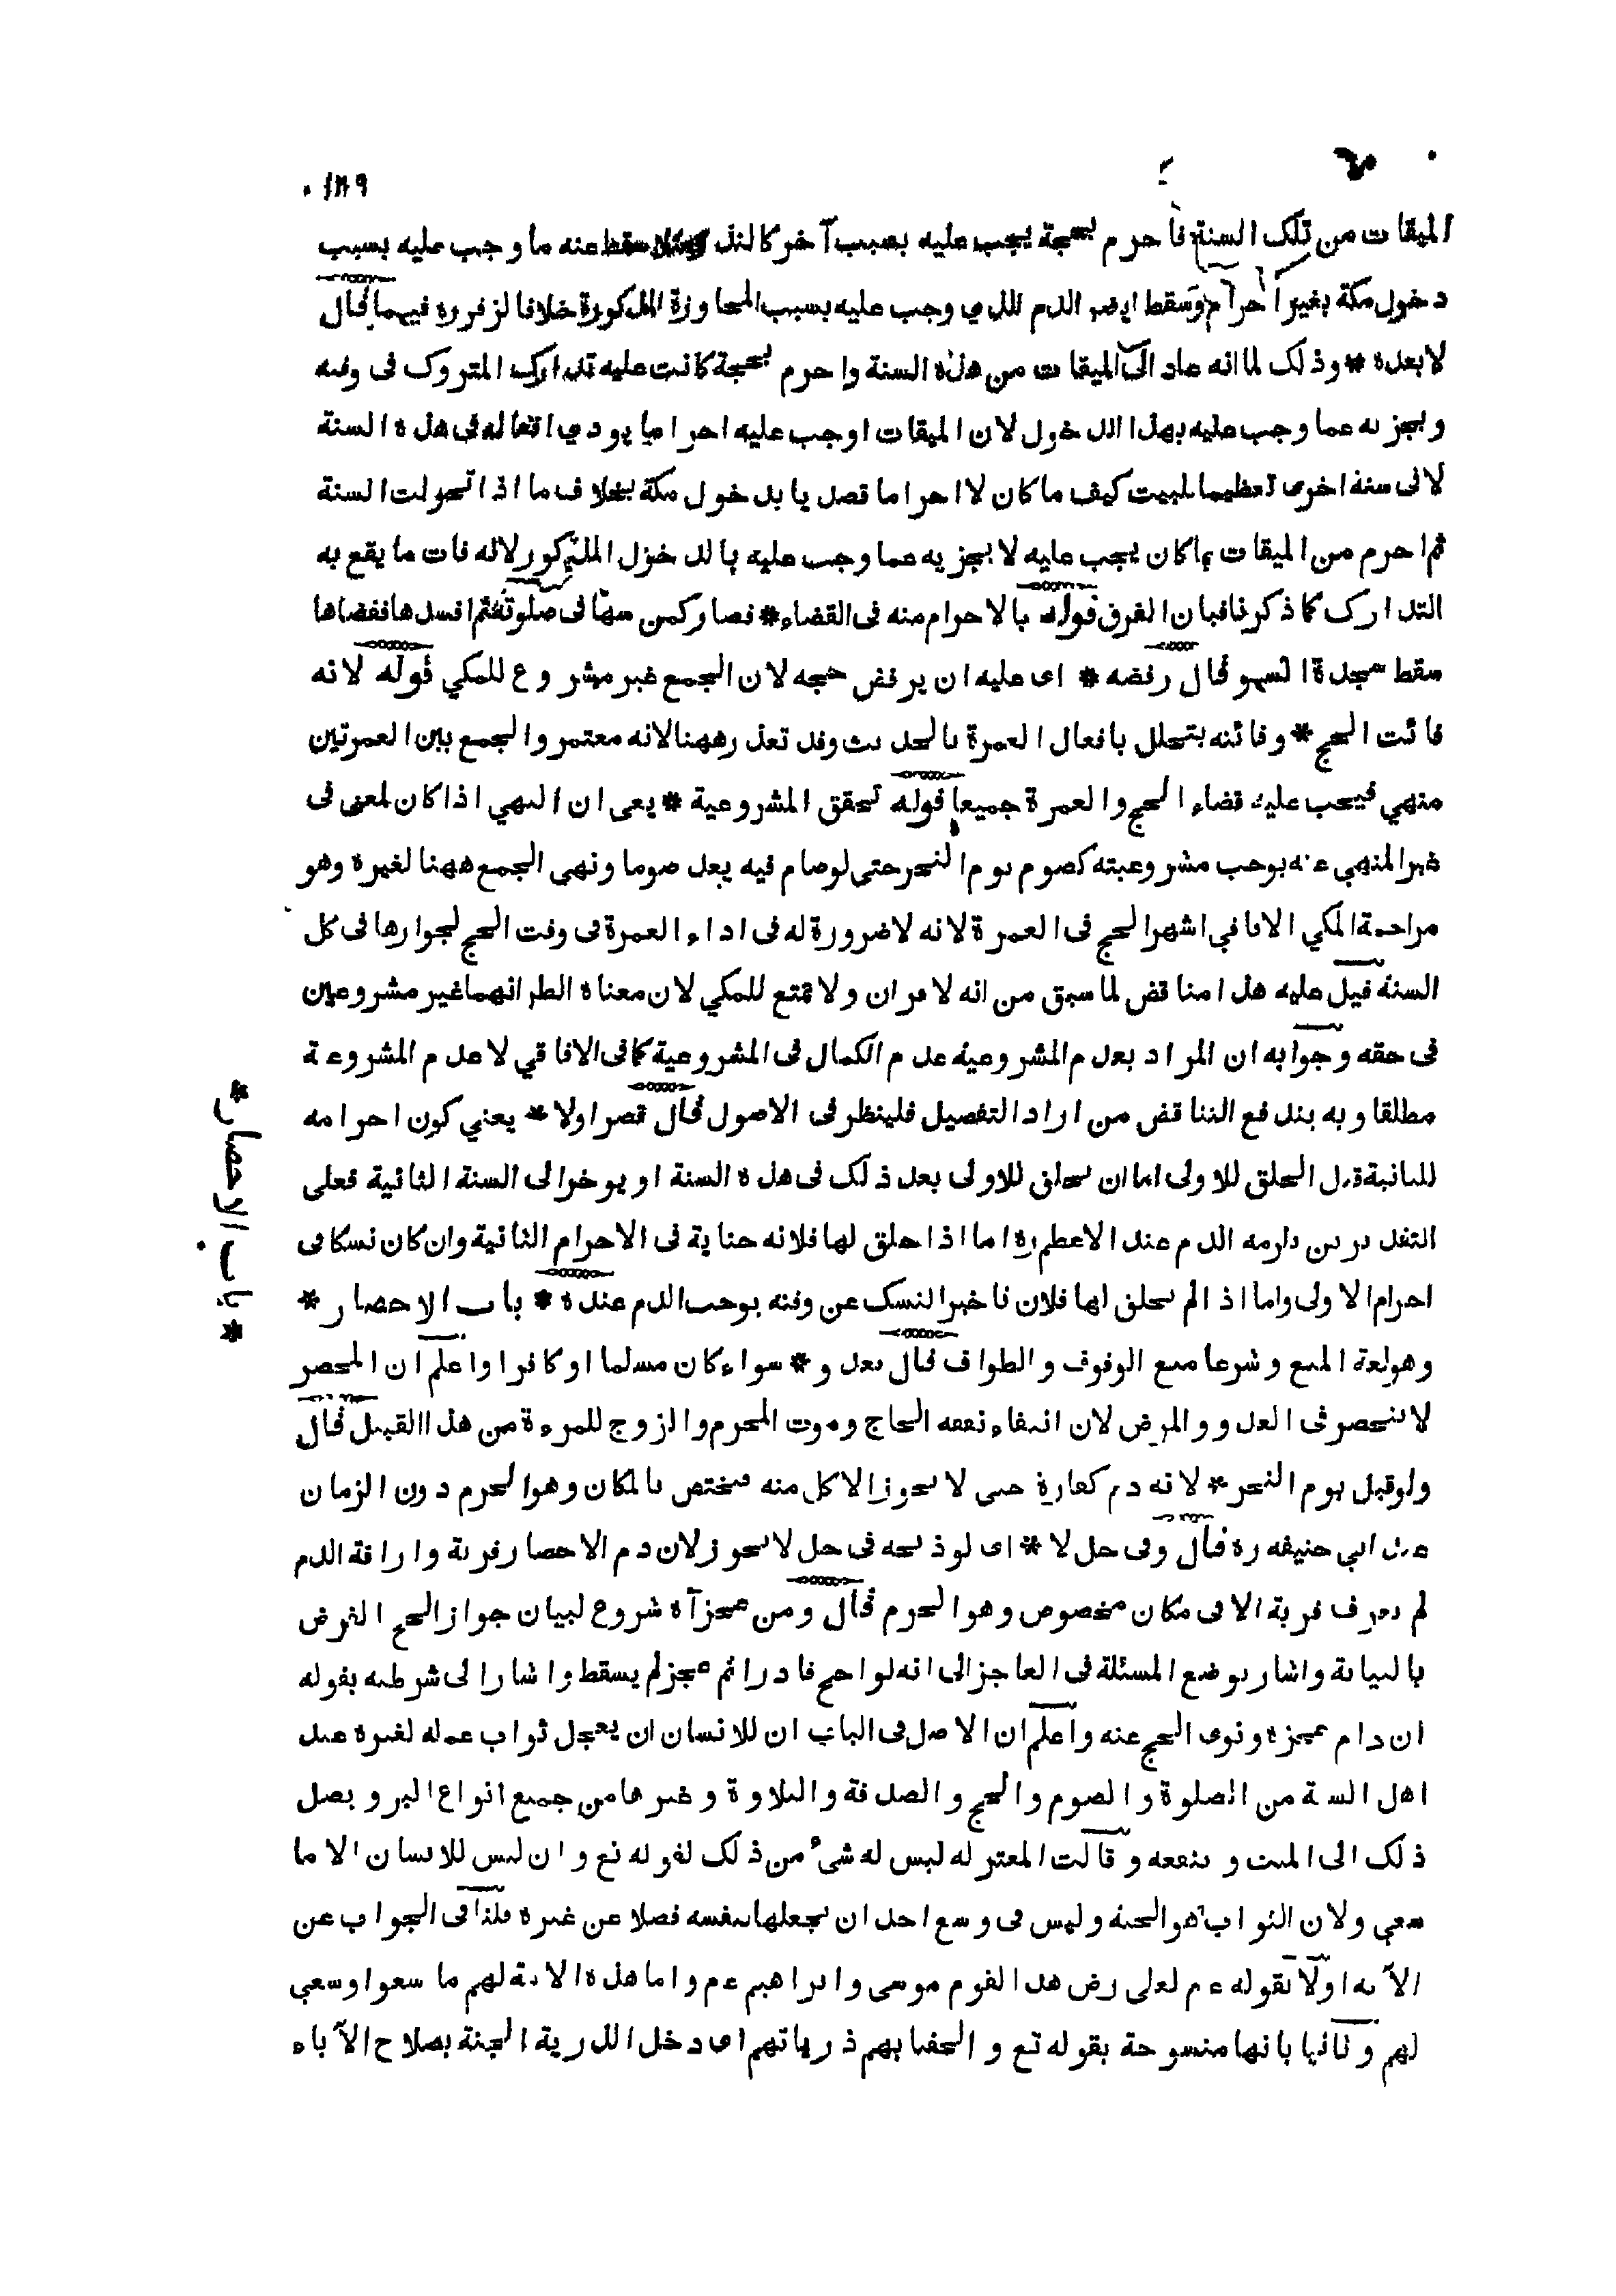 ١٨٩
الميقات من تلك السنة فاحرم بحجة يجب عليه بسبب آخر كالنذر مثلا سقط عنه ما وجب عليه بسبب
دخول مكة بغير احرام وسقط ايضا الدم الذي وجب عليه بسبب المجاوزة المذكورة خلافا لزفر ره فيهما قال
لا بعده * وذلك لما انه عاد الى الميقات من هذه السنة واحرم بحجة كانت عليه تدارك المتروك فى وقته
ويجزيه عما وجب عليه بهذا الدخول لان الميقات اوجب عليه احراما يودي افعاله فى هذه السنة
لا فى سنة اخرى تعظيما للبيت كيف ما كان لا احراما قصديا بدخول مكة بخلاف ما اذا تحولت السنة
ثم احرم من الميقات بما كان يجب عليه لا يجزيه عما وجب عليه بالدخول المذكور لانه فات ما يقع به
التدارك كما ذكرنا فبان الفرق قوله بالاحرام منه فى القضاء * فصار كمن سها فى صلوته ثم افسدها فقضاها
سقط سجدة السهو قال رفضه * اى عليه ان يرفض حجه لان الجمع غير مشروع للمكي قوله لانه
فائت الحج * وفائته يتحلل بافعال العمرة بالحديث وقد تعذر ههنا لانه معتمر والجمع بين العمرتين
منهي فيجب عليه قضاء الحج والعمرة جميعا قوله تحقق المشروعية * يعى ان النهي اذا كان لمعنى فى
غير المنهي عنه يوجب مشروعيته كصوم يوم النحر حتى لو صام فيه يعد صوما ونهى الجمع ههنا لغيره وهو
مزاحمة المكي الافاقي فى اشهر الحج فى العمرة لانه لا ضرورة له فى اداء العمرة فى وقت الحج لجوارها فى كل
السنة قيل عليه هذا مناقض لما سبق من انه لا قران ولا تمتع للمكي لان معناه الظ انهما غير مشروعين
فى حقه وجوابه ان المراد بعدم المشروعية عدم الكمال فى المشروعية كما فى الافاقي لا عدم المشروعة
مطلقا وبه يندفع التناقض من اراد التفصيل فلينظر فى الاصول قال قصر اولا * يعني كون احرامه
للثانية قبل الحلق للاولى اما ان يحلق للاولى بعد ذلك فى هذه السنة او يوخر الى السنة الثانية فعلى
التقديرين يلزمه الدم عند الاعظم ره اما اذا حلق لها فلانه جناية فى الاحرام الثانية وان كان نسكا فى
احرام الاولى واما اذا لم يحلق لها فلان تاخير النسك عن وقته يوجب الدم عنده * باب الاحصار *
وهو لغة المنع وشرعا منع الوقوف والطواف قال بعدو * سواء كان مسلما او كافرا واعلم ان المحصر
لا ينحصر فى العدو والمرض لان انتفاء نفقة الحاج وموت المحرم والزوج للمرءة من هذا القبيل قال
ولو قبل يوم النحر * لانه دم كفارة حتى لا يجوز الاكل منه فيختص بالمكان وهو الحرم دون الزمان
عند ابي حنيفة ره قال وفى حل لا * اى لو ذبحه فى حل لا يجوز لان دم الاحصار قربة واراقة الدم
لم يعرف قربة الا فى مكان مخصوص وهو الحرم قال ومن عجز آه شروع لبيان جواز الحج الفرض
بالنيابة واشار بوضع المسئلة فى العاجز الى انه لو احج قادرا ثم عجز لم يسقط واشار الى شرطيه بقوله
ان دام عجزه ونوى الحج عنه واعلم ان الاصل فى الباب ان للانسان ان يجعل ثواب عمله لغيره عند
اهل السنة من الصلوة والصوم والحج والصدقة والتلاوة وغيرها من جميع انواع البر ويصل
ذلك الى الميت وينفعه وقالت المعتزله ليس له شىء من ذلك لقوله تع وان ليس للانسان الا ما
سعي ولان الثواب هو الجنة وليس فى وسع احد ان يجعلها لنفسه فضلا عن غيره قلنا فى الجواب عن
الآية اولا بقوله عم لعلى رض هذا لقوم موسى وابراهيم عم واما هذه الامة لهم ما سعوا وسعي
لهم وثانيا بانها منسوخة بقوله تع والحقنا بهم ذرياتهم اى دخل الذرية الجنة بصلاح الآباء
* باب الاحصار *